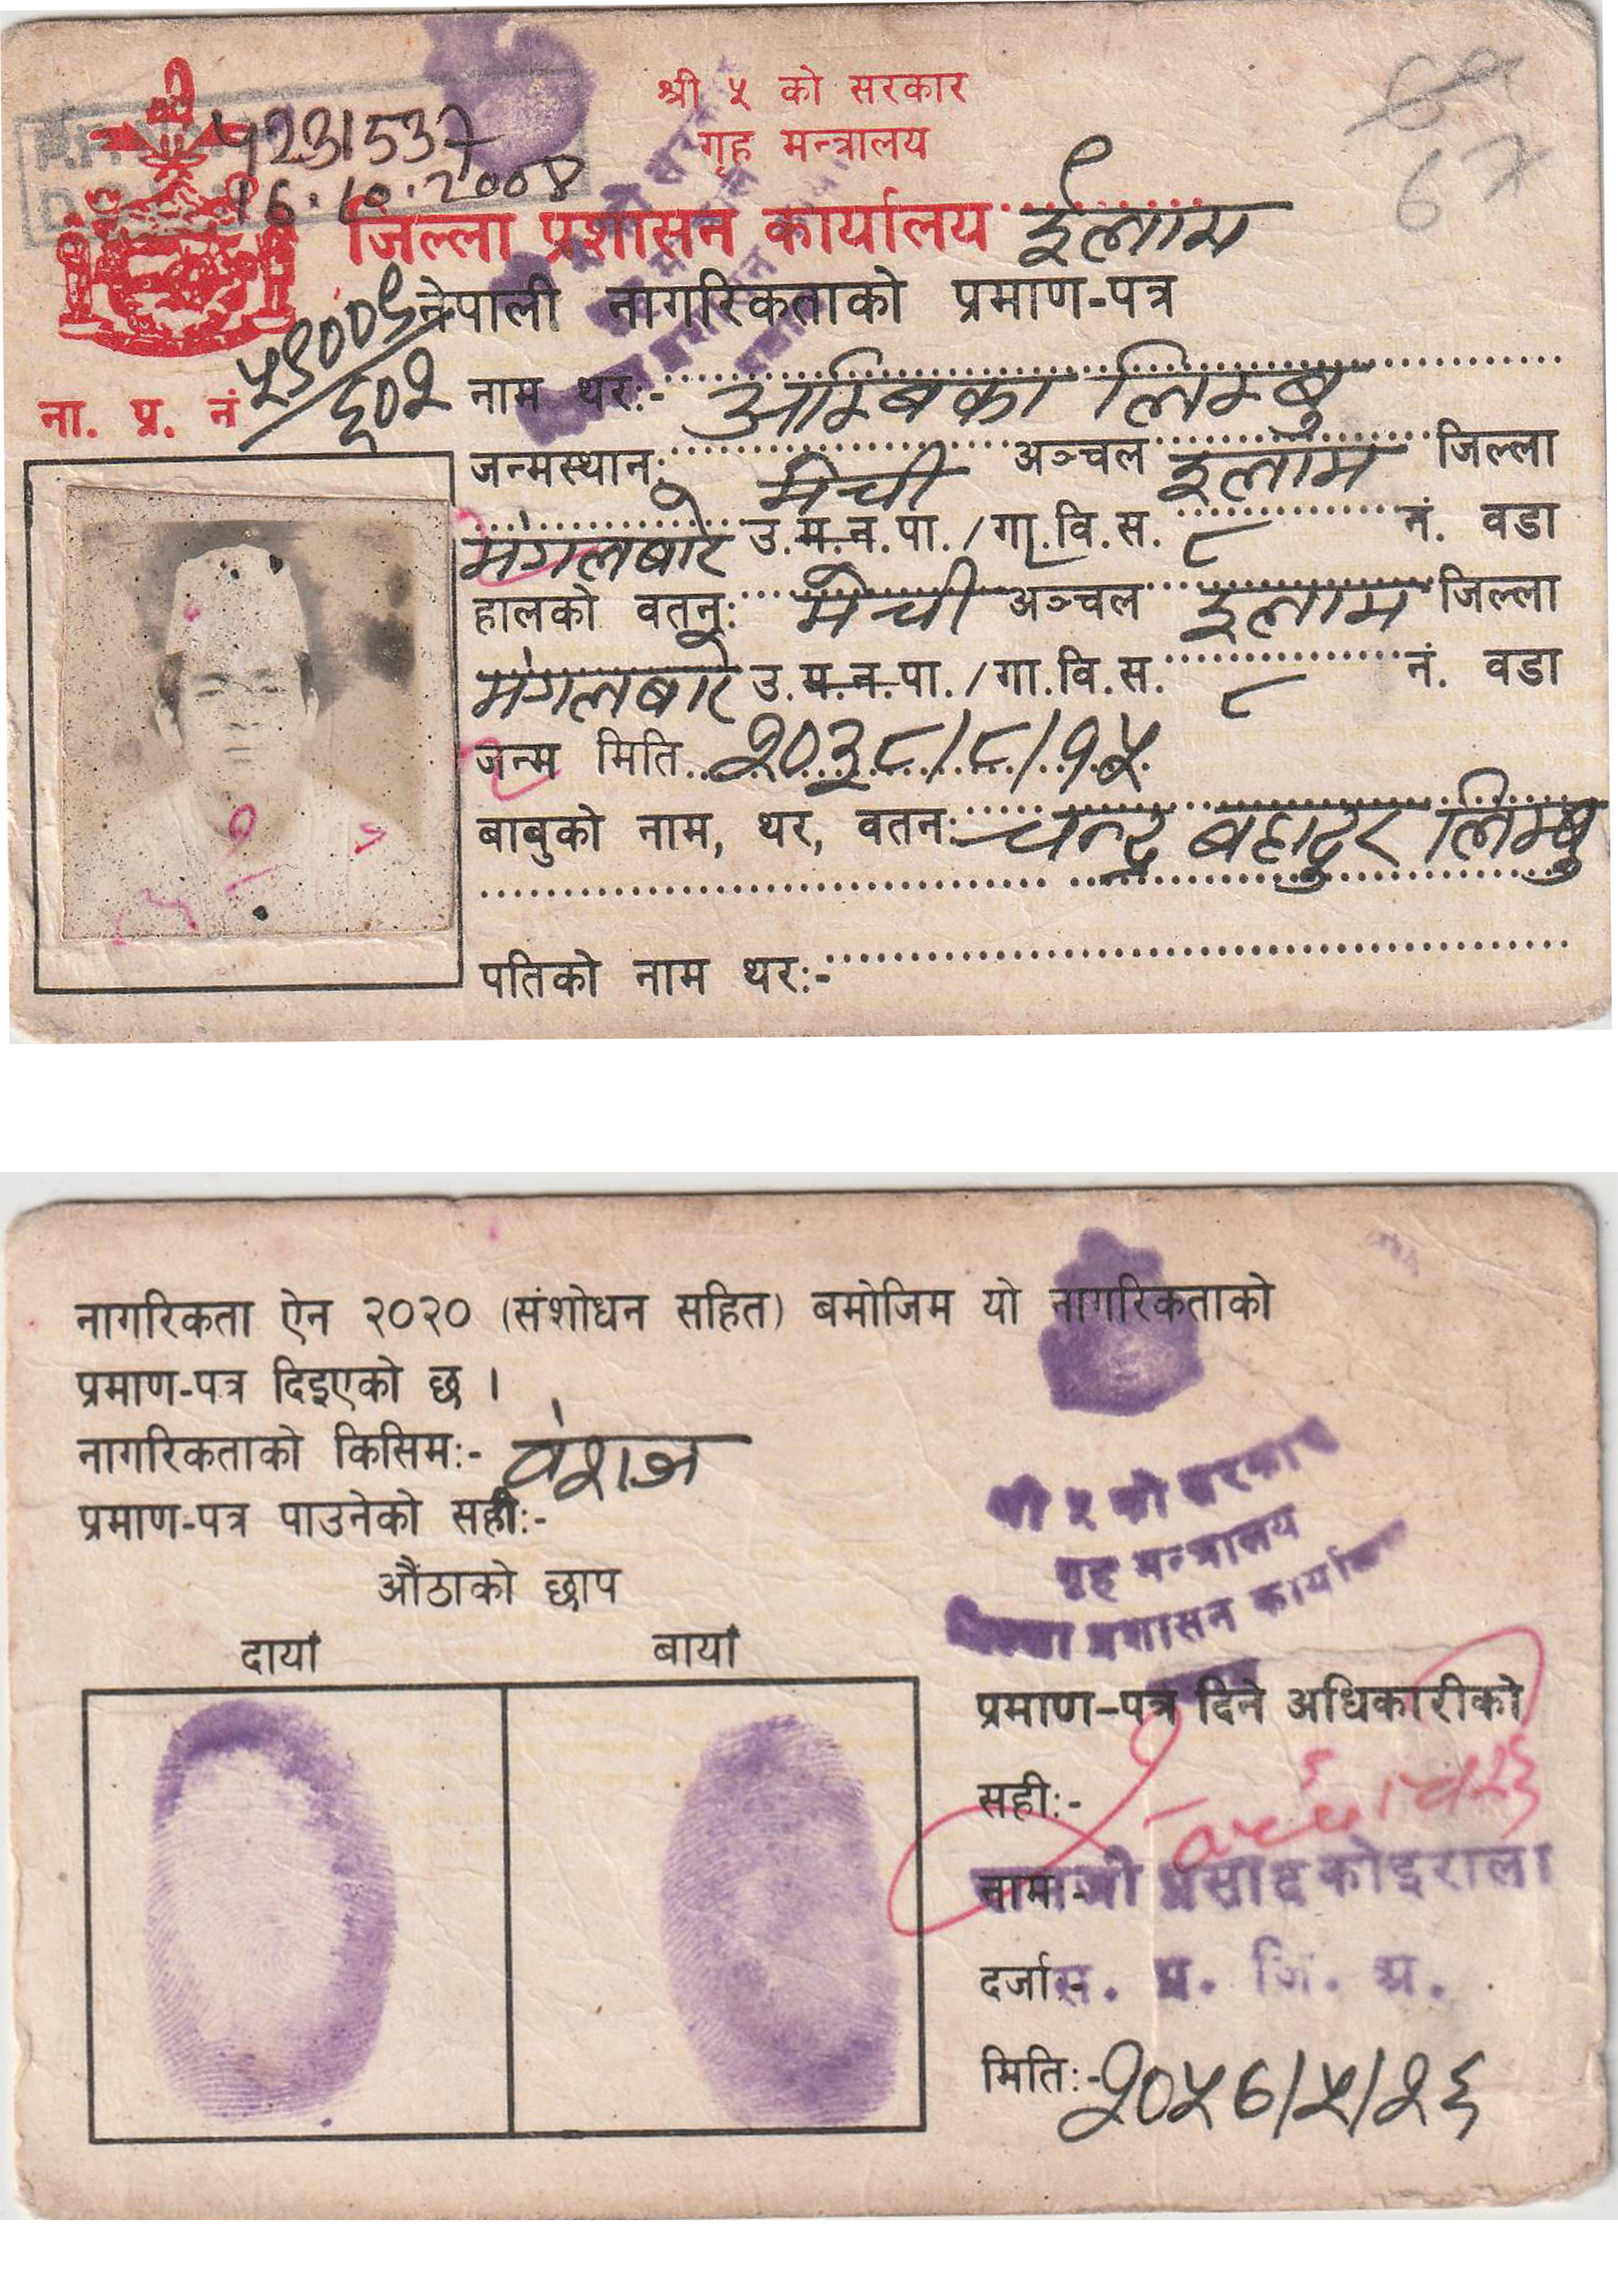 श्री ५ को सरकार
गृह मन्त्रालय
4231537
16.10.2008
67
जिल्ला प्रशासन कार्यालय ईलाम
नेपाली नागरिकताको प्रमाण-पत्र
ना. प्र. नं
नाम थर:- अम्बिका लिम्बु
जन्मस्थान: मेची अञ्चल इलाम जिल्ला
मंगलबारे उ.म.न.पा./गा.वि.स. ८ नं. वडा
हालको वतन: मेची अञ्चल इलाम जिल्ला
मंगलबारे उ.म.न.पा./गा.वि.स. ८ नं. वडा
जन्म मिति २०३८/८/१५
बाबुको नाम, थर, वतन: चन्द्र बहादुर लिम्बु
पतिको नाम थर:-
नागरिकता ऐन २०२० (संशोधन सहित) बमोजिम यो नागरिकताको
प्रमाण-पत्र दिइएको छ ।
नागरिकताको किसिम:- वंशज
प्रमाण-पत्र पाउनेको सही:-
औंठाको छाप
दायाँ बायाँ
श्री ५ को सरकार
गृह मन्त्रालय
जिल्ला प्रशासन कार्यालय
प्रमाण-पत्र दिने अधिकारीको
सही:-
नाम:- प्रसाद कोइराला
दर्जा:- स. प्र. जि. अ.
मिति:- २०५६/५/२६